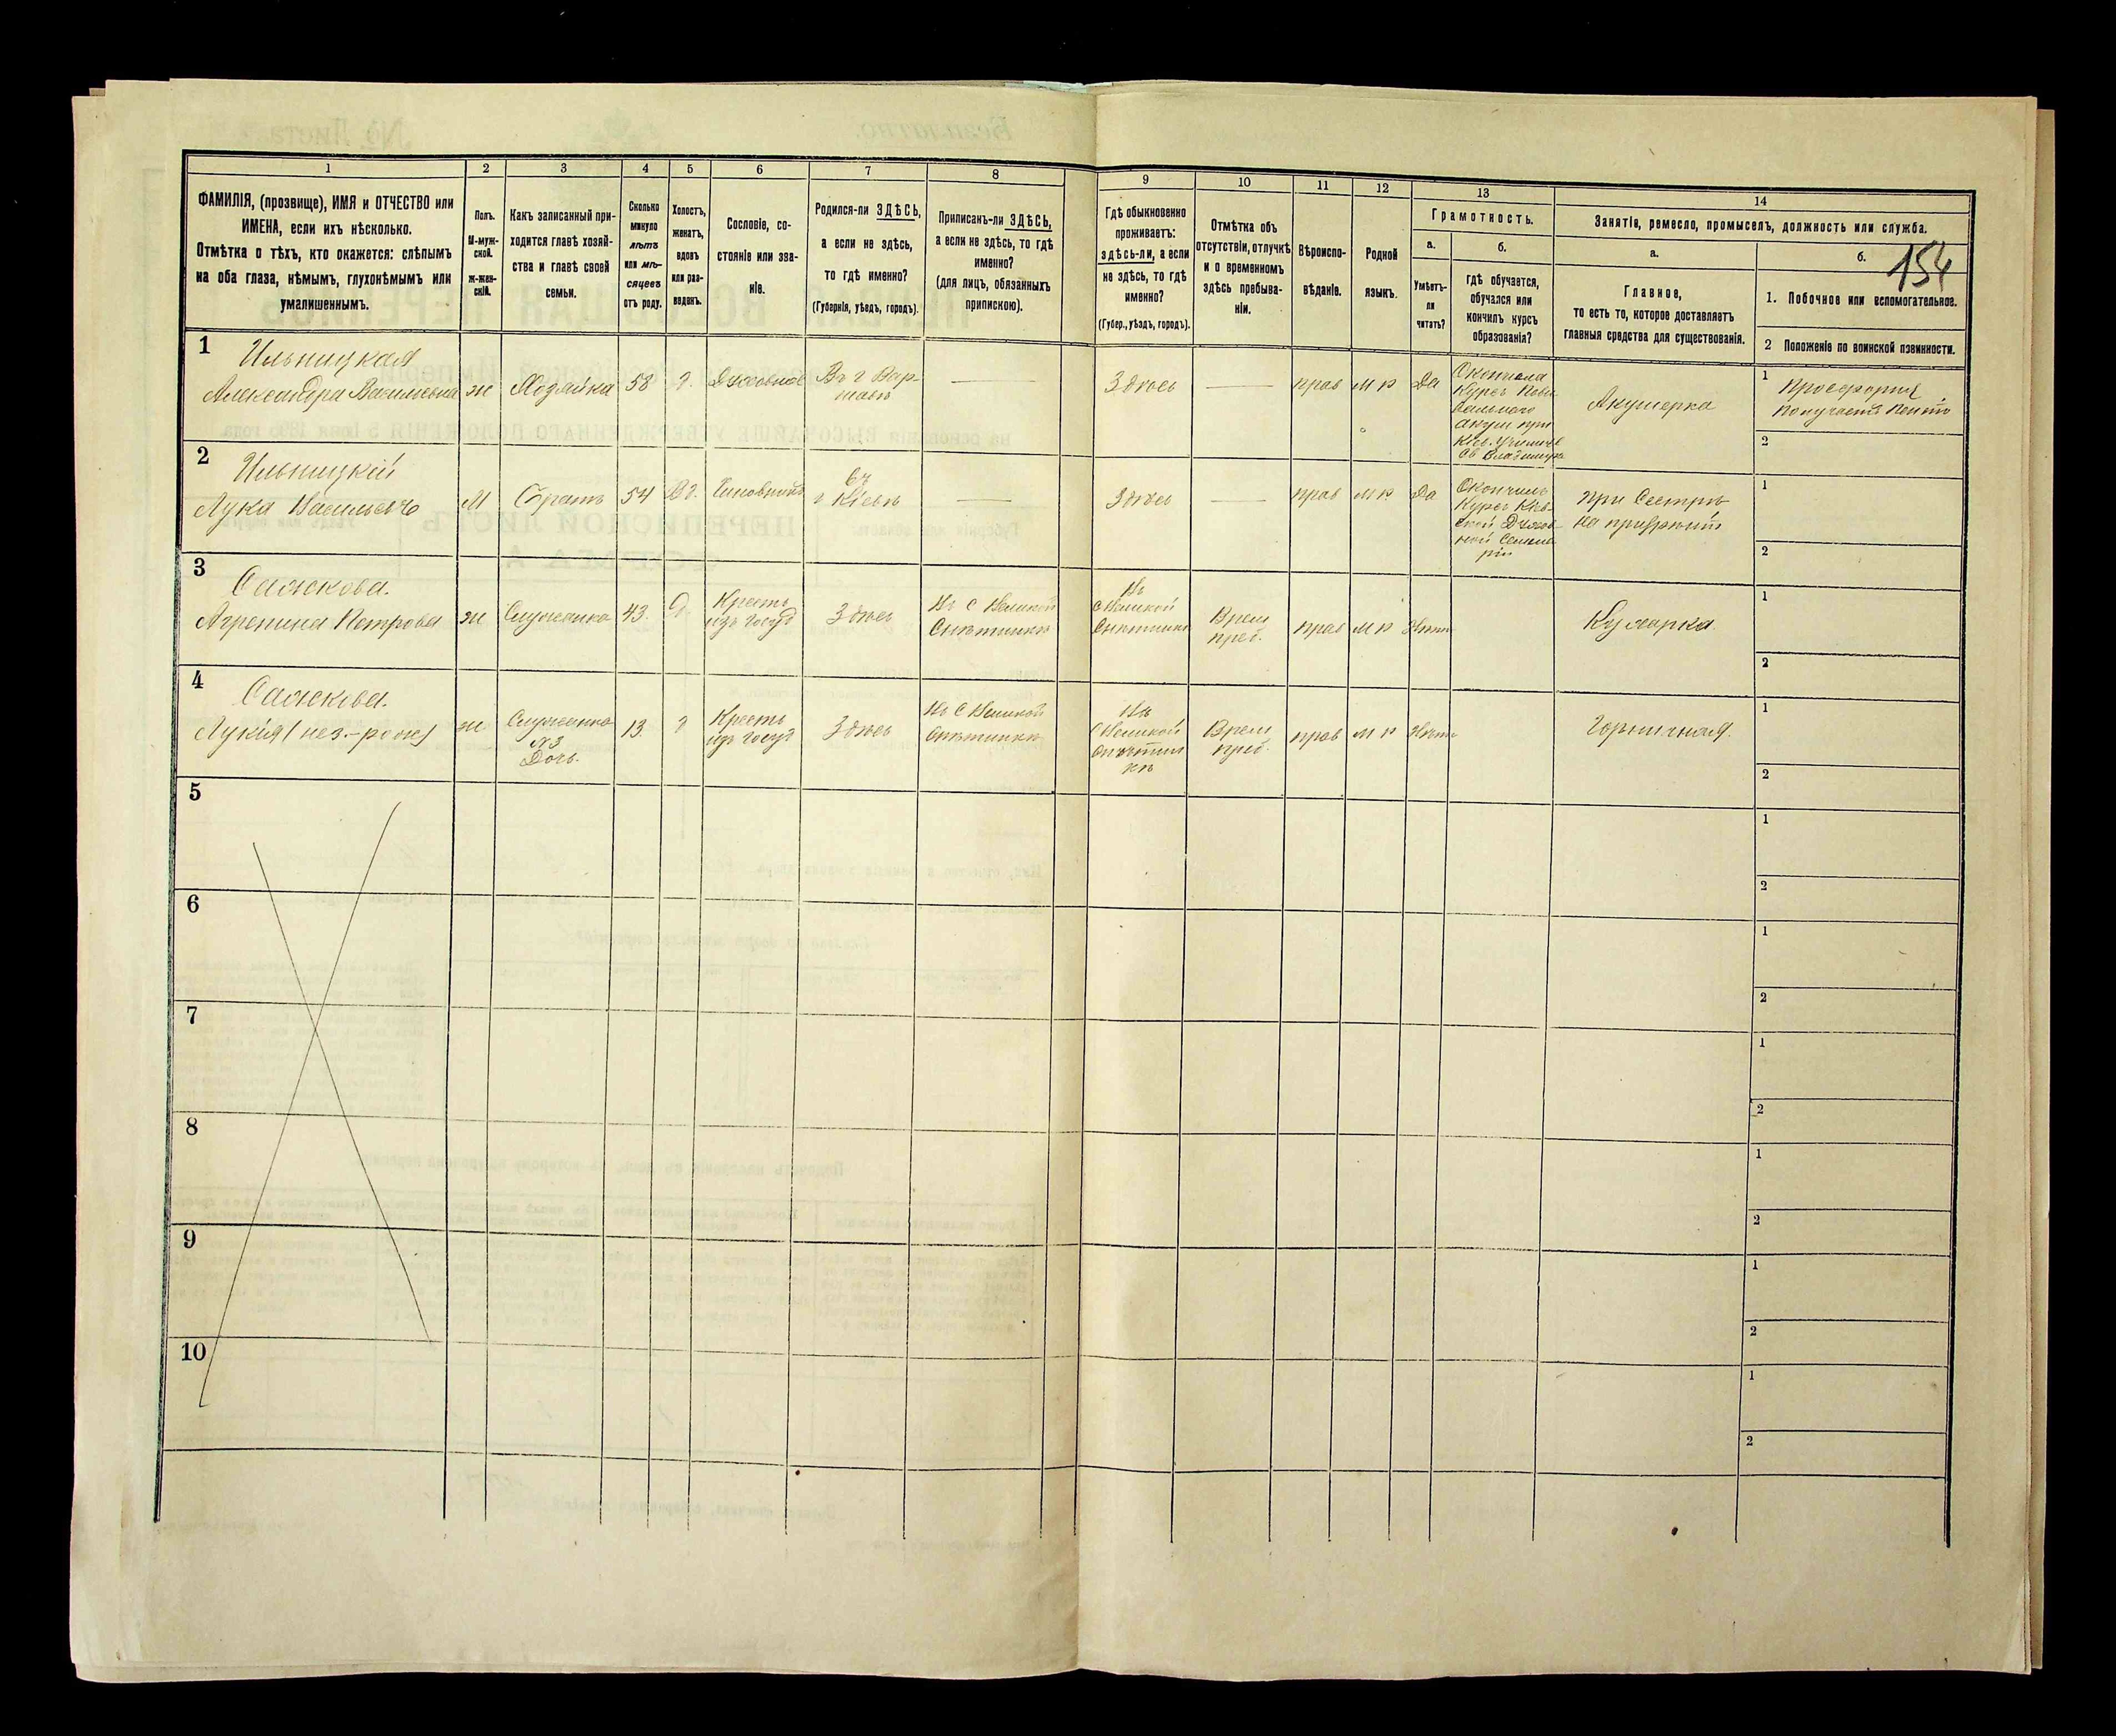 154
1
2
3
4
5
6
7
8
9
10
11
12
13
14
ФАМИЛІЯ, (прозвище), ИМЯ и ОТЧЕСТВО или
ИМЕНА, если ихъ нѣсколько.
Отмѣтка о тѣхъ, кто окажется: слѣпымъ
на оба глаза, нѣмымъ, глухонѣмымъ или
умалишеннымъ.
Полъ.
М-муж-
ской.
ж-жен-
скій.
Какъ записанный при-
ходится главѣ хозяй-
ства и главѣ своей
семьи.
Сколько
минуло
лѣтъ
или мѣ-
сяцевъ
отъ роду.
Холостъ,
женатъ,
вдовъ
или раз-
веденъ.
Сословіе, со-
стояніе или зва-
ніе.
Родился-ли ЗДѢСЬ,
а если не здѣсь,
то гдѣ именно?
(Губернія, уѣздъ, городъ).
Приписанъ-ли ЗДѢСЬ,
а если не здѣсь, то гдѣ
именно?
(для лицъ, обязанныхъ
припискою).
Гдѣ обыкновенно
проживаетъ:
здѣсь-ли, а если
не здѣсь, то гдѣ
именно?
(Губер., уѣздъ, городъ).
Отмѣтка объ
отсутствіи, отлучкѣ
и о временномъ
здѣсь пребыва-
ніи.
Вѣроиспо-
вѣданіе.
Родной
языкъ.
Грамотность.
а.
Умѣетъ-
ли
читать?
б.
гдѣ обучается,
обучался или
кончилъ курсъ
образованія?
Занятіе, ремесло, промыселъ, должность или служба.
а.
Главное,
то есть то, которое доставляетъ
главныя средства для существованія.
б.
1. Побочное или вспомогательное.
2 Положеніе по воинской повинности.
1
Ильницкая
Александра Васильевна
ж
Хозяйка
58
Духовное
Въ г Вар-
шавѣ
Здѣсь
прав
м р
Да
Окончила
Курсъ
акуш при
Кіев.
Св Владимира
Акушерка
1
Просфорня
Получаетъ
2
2
Ильницкій
Лука Васильевъ
М
Братъ
54
Чиновникъ
г Кіевѣ
Здѣсь
прав
м р
Да
Окончилъ
Курсъ Кіев-
ской Духов-
ной Семина
ріи
При Сестрѣ
1
2
3
Сажкова.
Агрепина Петрова
ж
Служанка
43.
Крестъ
изъ госуд
Здѣсь
Въ С Великой
Снѣтинкѣ
Въ
С Великой
Снѣтинкѣ
Врем
преб.
прав
м р
Нѣтъ
Кухарка.
1
2
4
Сажкова.
Лукія (нез.-рож)
ж
Служанка
№3
Дочь.
13.
Крестъ
изъ госуд
Здѣсь
Въ С Великой
Снѣтинкѣ
Въ
С Великой
Снѣтин
кѣ
Врем
преб.
прав
м р
Нѣтъ
Горничная.
1
2
5
1
2
6
1
2
7
1
2
8
1
2
9
1
2
10
1
2